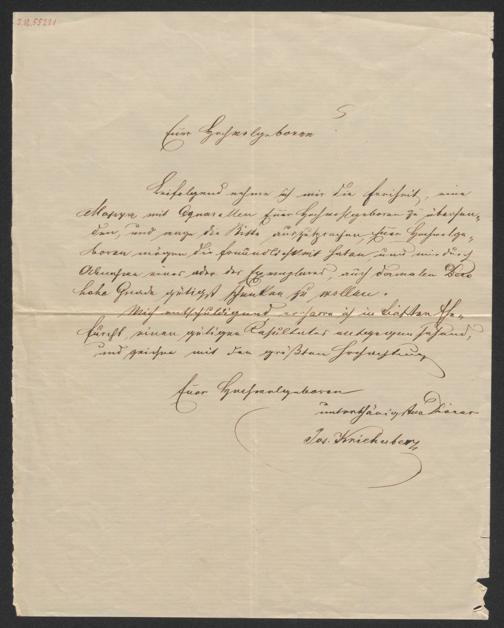 I.N. 55221
Euer Hochwolgeboren
Beifolgend nehme ich mir die Freiheit, eine
Mappe mit Aquarellen Euer Hochwolgeboren zu übersen-
den, und wage die Bitte auszusprechen, Euer Hochwolge-
boren mögen die Freundlichkeit haben und mir durch
Abnahme eines oder des Exemplares, auch Dero
hohe Gnade gütigst schenken zu wollen.
Mich entschuldigend, ich in Ehr-
furcht, einen gütigen Resultates entgegen sehend,
und zeichne mit der größten Hochachtung
Euer Hochwolgeboren
unterthänigster Diener
Jos. Kriehuber